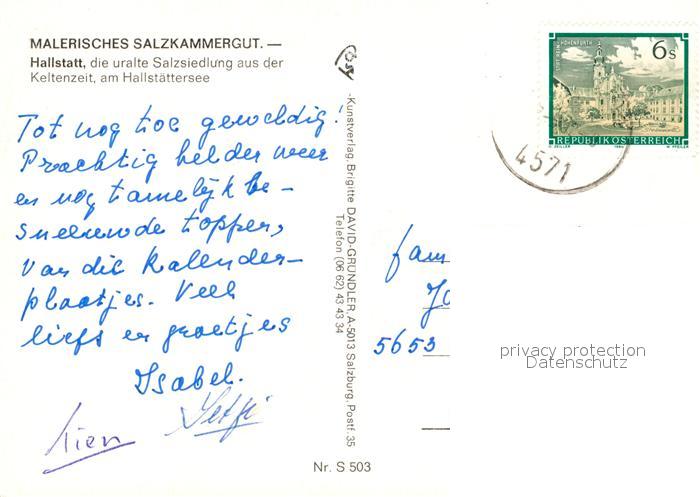 MALERISCHES SALZKAMMERGUT. —
Hallstatt, die uralte Salzsiedlung aus der
Keltenzeit, am Hallstättersee
Tot nog toe geweldig!
Prachtig helder weer
en nog tamelijk be-
sneeuwde toppen,
van die kalender-
plaatjes. Veel
liefs en groetjes
Isabel.
Sien
-Kunstverlag, Brigitte DAVID-GRÜNDLER, A-5013 Salzburg, Postf. 35
Telefon (06 62) 43 43 34
Nr. S 503
STIFT REIN-HOHENFURTH
6s
REPUBLIK ÖSTERREICH
4571
fam
5653
privacy protection
Datenschutz